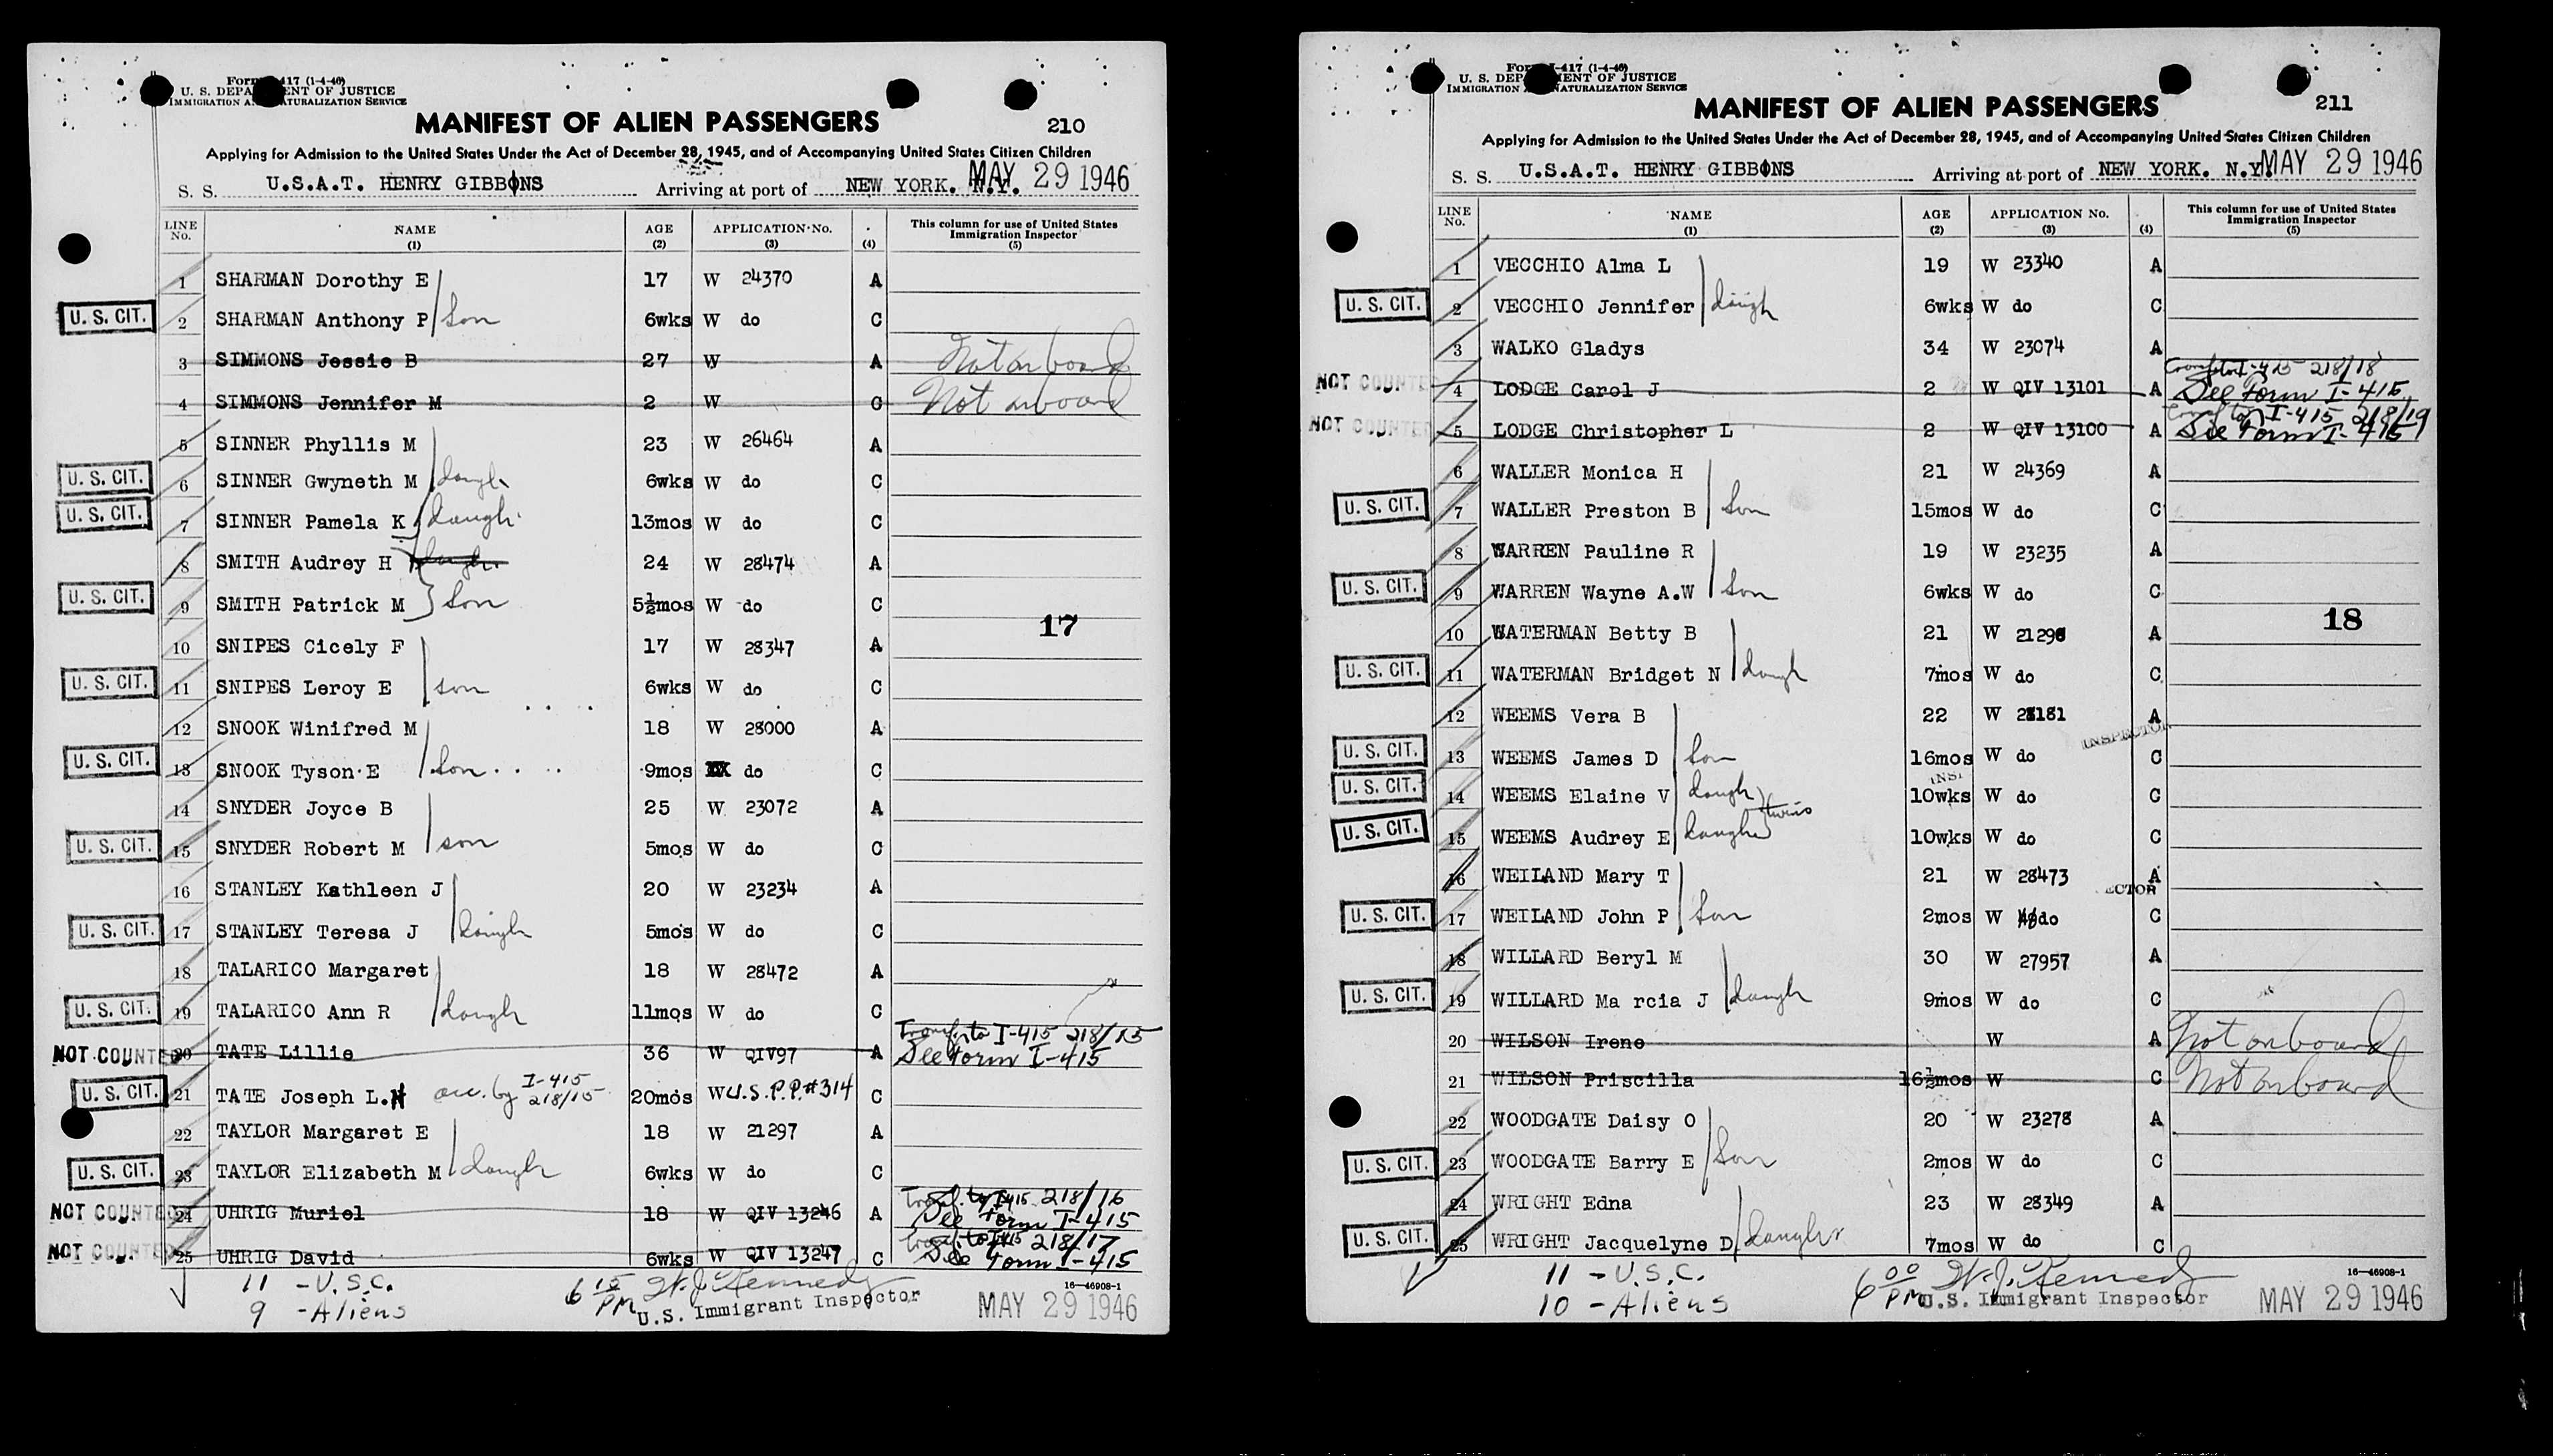 Form I-417 (1-4-46)
U. S. DEPARTMENT OF JUSTICE
IMMIGRATION AND NATURALIZATION SERVICE
MANIFEST OF ALIEN PASSENGERS
210
Applying for Admission to the United States Under the Act of December 28, 1945, and of Accompanying United States Citizen Children
S. S. U.S.A.T. HENRY GIBBONS Arriving at port of NEW YORK. N.Y. MAY 29 1946
LINE No. NAME (1) AGE (2) APPLICATION No. (3) (4) This column for use of United States Immigration Inspector (5)
1 SHARMAN Dorothy E 17 W 24370 A
U. S. CIT. 2 SHARMAN Anthony P son 6wks W do C
3 SIMMONS Jessie B 27 W A Not on board
4 SIMMONS Jennifer M 2 W C Not onboard
5 SINNER Phyllis M 23 W 26464 A
U. S. CIT. 6 SINNER Gwyneth M daugh 6wks W do C
U. S. CIT. 7 SINNER Pamela K daugh 13mos W do C
8 SMITH Audrey H daugh 24 W 28474 A
U. S. CIT. 9 SMITH Patrick M son 5½mos W do C
17
10 SNIPES Cicely F 17 W 28347 A
U. S. CIT. 11 SNIPES Leroy E son 6wks W do C
12 SNOOK Winifred M 18 W 28000 A
U. S. CIT. 13 SNOOK Tyson E son 9mos do C
14 SNYDER Joyce B 25 W 23072 A
U. S. CIT. 15 SNYDER Robert M son 5mos W do C
16 STANLEY Kathleen J 20 W 23234 A
U. S. CIT. 17 STANLEY Teresa J daugh 5mos W do C
18 TALARICO Margaret 18 W 28472 A
U. S. CIT. 19 TALARICO Ann R daugh 11mos W do C
Transf to I-415 218/15
NOT COUNTED 20 TATE Lillie 36 W QIV97 A See Form I-415
U. S. CIT. 21 TATE Joseph L.H acc. by I-415 218/15 20mos W U.S.P.P.#314 C
22 TAYLOR Margaret E 18 W 21297 A
U. S. CIT. 23 TAYLOR Elizabeth M daugh 6wks W do C
Transf. to I-415 218/16
NOT COUNTED 24 UHRIG Muriel 18 W QIV 13246 A See Form I-415
Transf. to I-415 218/17
NOT COUNTED 25 UHRIG David 6wks W QIV 13247 C See Form I-415
11 - U.S.C.
9 - Aliens
6 15 PM W. J. Kennedy
U.S. Immigrant Inspector
16—46908-1
MAY 29 1946
Form I-417 (1-4-46)
U. S. DEPARTMENT OF JUSTICE
IMMIGRATION AND NATURALIZATION SERVICE
MANIFEST OF ALIEN PASSENGERS
211
Applying for Admission to the United States Under the Act of December 28, 1945, and of Accompanying United States Citizen Children
S. S. U.S.A.T. HENRY GIBBONS Arriving at port of NEW YORK. N.Y. MAY 29 1946
LINE No. NAME (1) AGE (2) APPLICATION No. (3) (4) This column for use of United States Immigration Inspector (5)
1 VECCHIO Alma L 19 W 23340 A
U. S. CIT. 2 VECCHIO Jennifer daugh 6wks W do C
3 WALKO Gladys 34 W 23074 A
Transf to I-415 218/18
NOT COUNTED 4 LODGE Carol J 2 W QIV 13101 A See Form I-415
Transf to I-415 218/19
NOT COUNTED 5 LODGE Christopher L 2 W QIV 13100 A See Form I-415
6 WALLER Monica H 21 W 24369 A
U. S. CIT. 7 WALLER Preston B son 15mos W do C
8 WARREN Pauline R 19 W 23235 A
U. S. CIT. 9 WARREN Wayne A.W son 6wks W do C
18
10 WATERMAN Betty B 21 W 21298 A
U. S. CIT. 11 WATERMAN Bridget N daugh 7mos W do C
12 WEEMS Vera B 22 W 28181 A
INSPECTOR
U. S. CIT. 13 WEEMS James D son 16mos W do C
U. S. CIT. 14 WEEMS Elaine V daugh 10wks W do C
twins
U. S. CIT. 15 WEEMS Audrey E daugh 10wks W do C
16 WEILAND Mary T 21 W 28473 A
ECTOR
U. S. CIT. 17 WEILAND John P son 2mos W do C
18 WILLARD Beryl M 30 W 27957 A
U. S. CIT. 19 WILLARD Ma rcia J daugh 9mos W do C
20 WILSON Irene W A Not on board
21 WILSON Priscilla 16½mos W C Not onboard
22 WOODGATE Daisy O 20 W 23278 A
U. S. CIT. 23 WOODGATE Barry E son 2mos W do C
24 WRIGHT Edna 23 W 28349 A
U. S. CIT. 25 WRIGHT Jacquelyne D daugh 7mos W do C
11 - U.S.C.
10 - Aliens
6 00 PM W. J. Kennedy
U.S. Immigrant Inspector
16—46908-1
MAY 29 1946